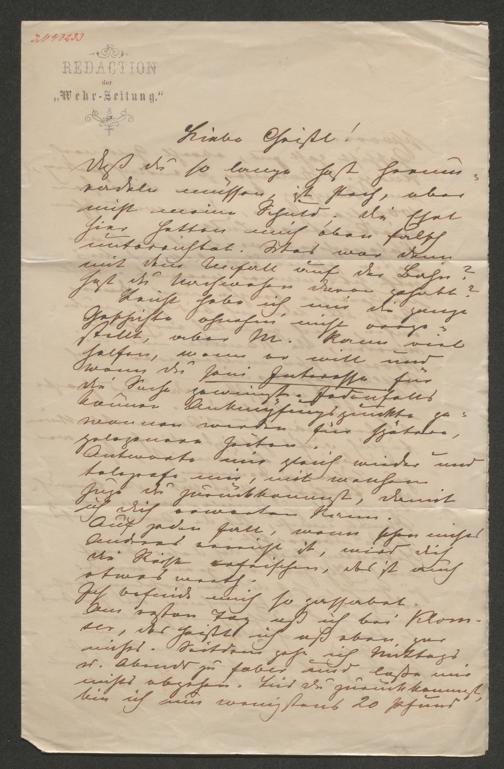 2047233
REDACTION
der
„Wehr-Zeitung."
Liebe Christl!
Daß du so lange hast herum-
radeln müssen, ist stark, aber
nicht meine Schuld. Die Esel
hier hatten mich eben falsch
unterrichtet. Was war denn
mit dem Unfall auf der Bahn?
Hast du Nachwehen davon gehabt?
habe ich mir die ganze
Geschichte ohnehin nicht vorge-
stellt, aber M. kann viel
helfen, wenn er will und
wenn du sein Interesse für
die Sache gewinnst. Jedenfalls
können Anknüpfungspunkte ge-
wonnen werden für spätere,
gelegenere Zeiten.
Antworte mir gleich wieder und
telegrafir mir, mit welchem
Zuge du zurückkommst, damit
ich dich erwarten kann.
Auf jeden Fall, wenn schon nichts
Anderes erreicht ist, wird dich
die Reise erfrischen, das ist auch
etwas werth.
Ich befinde mich so passabel.
Am ersten Tag aß ich bei Klom-
ser, das heißt ich aß eben gar
nichts. Seitdem geh ich Mittags
u. Abends zu und lasse mir
nichts abgehen. Bis du zurückkommst,
bin ich um wenigstens 20 Pfund